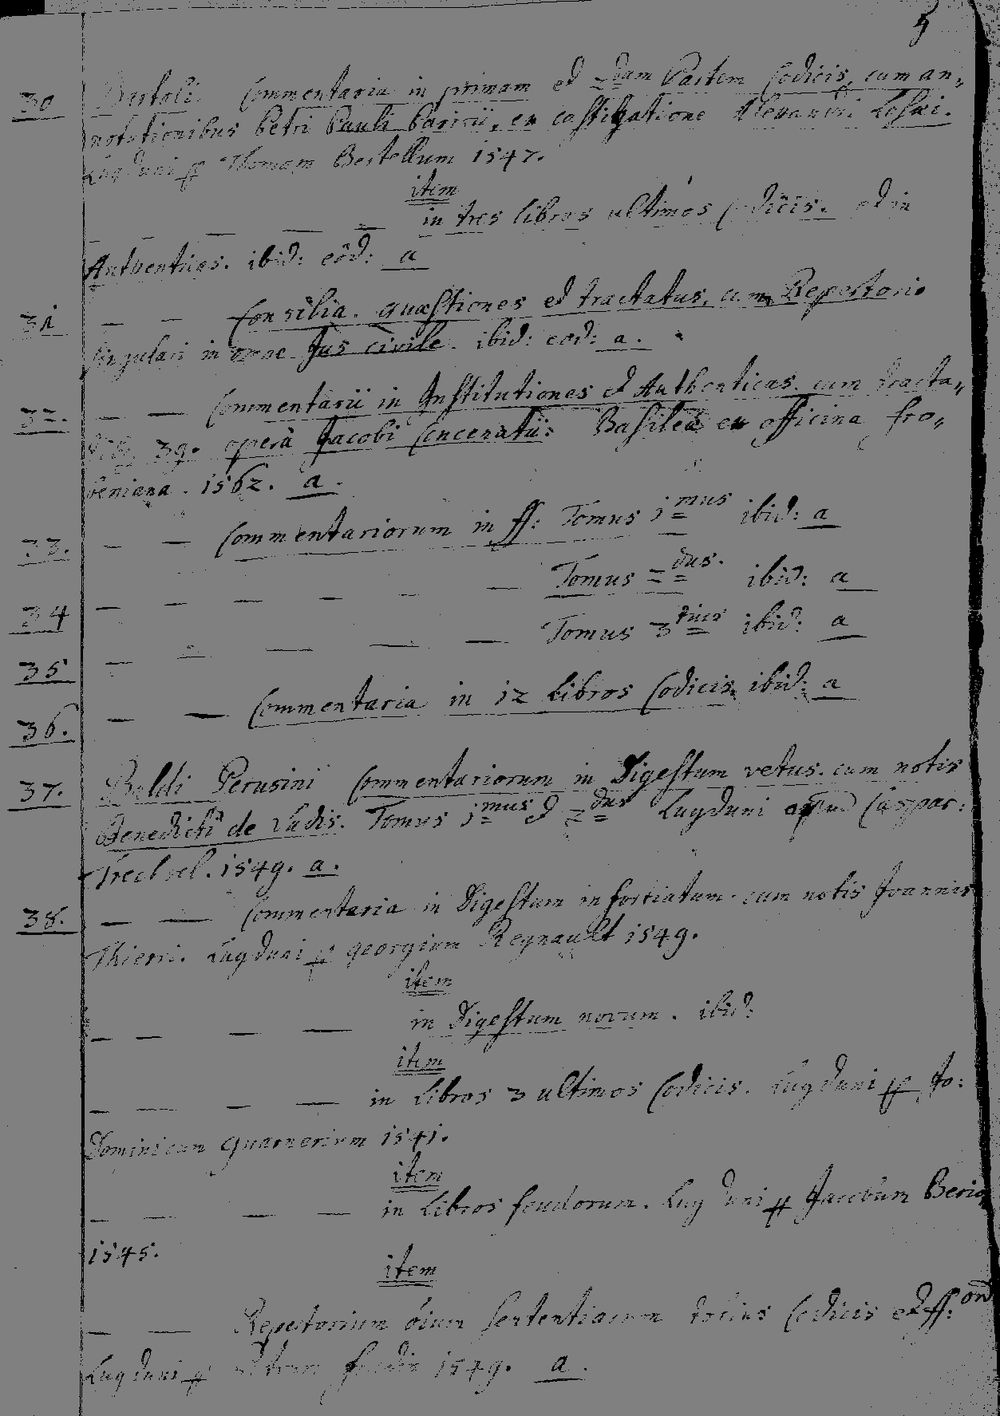 5
30 Bartoli Commentaria in primam et 2dam Partem Codicis, cum an-
notationibus Petri Pauli Parisii, ex castigatione Alexandri
Lugduni per Thomam Bertellum 1547.
item
— — — — in tres libros ultimos Codicis. et in
Autenticas. ibid: eod: a
31 — — Consilia. quæstiones et tractatus, cum Repertorio
singulari in omne Jus civile. ibid: eod: a.
32. — — Commentarii in Institutiones et Authenticas. cum tracta-
39. operâ Jacobi Concenatii: Basileæ ex officina fro-
beniana. 1562. a.
33. — — Commentariorum in ff: Tomus 1mus ibid: a
34 — — — — — — Tomus 2dus. ibid: a
35 — — — — — — Tomus 3tius ibid: a
36. — — Commentaria in 12 Libros Codicis. ibid: a
37. Baldi Perusini Commentariorum in Digestum vetus. cum notis
Benedicti de Vadis. Tomus 1mus et 2dus Lugduni apud Caspar:
Trechsel. 1549. a.
38. — — Commentaria in Digestum infortiatum. cum notis Joannis
Thierri. Lugduni per georgium Regnault 1549.
item
— — — — in Digestum novum. ibid:
item
— — — — in Libros 3 ultimos Codicis. Lugduni per Jo:
Dominicum Guarnerium 1541.
item
— — — — in Libros feudorum. Lugduni per Jacobum
1545.
item
— — Repertorium oium sententiarum totius Codicis et ff:
Lugduni per 1549. a.